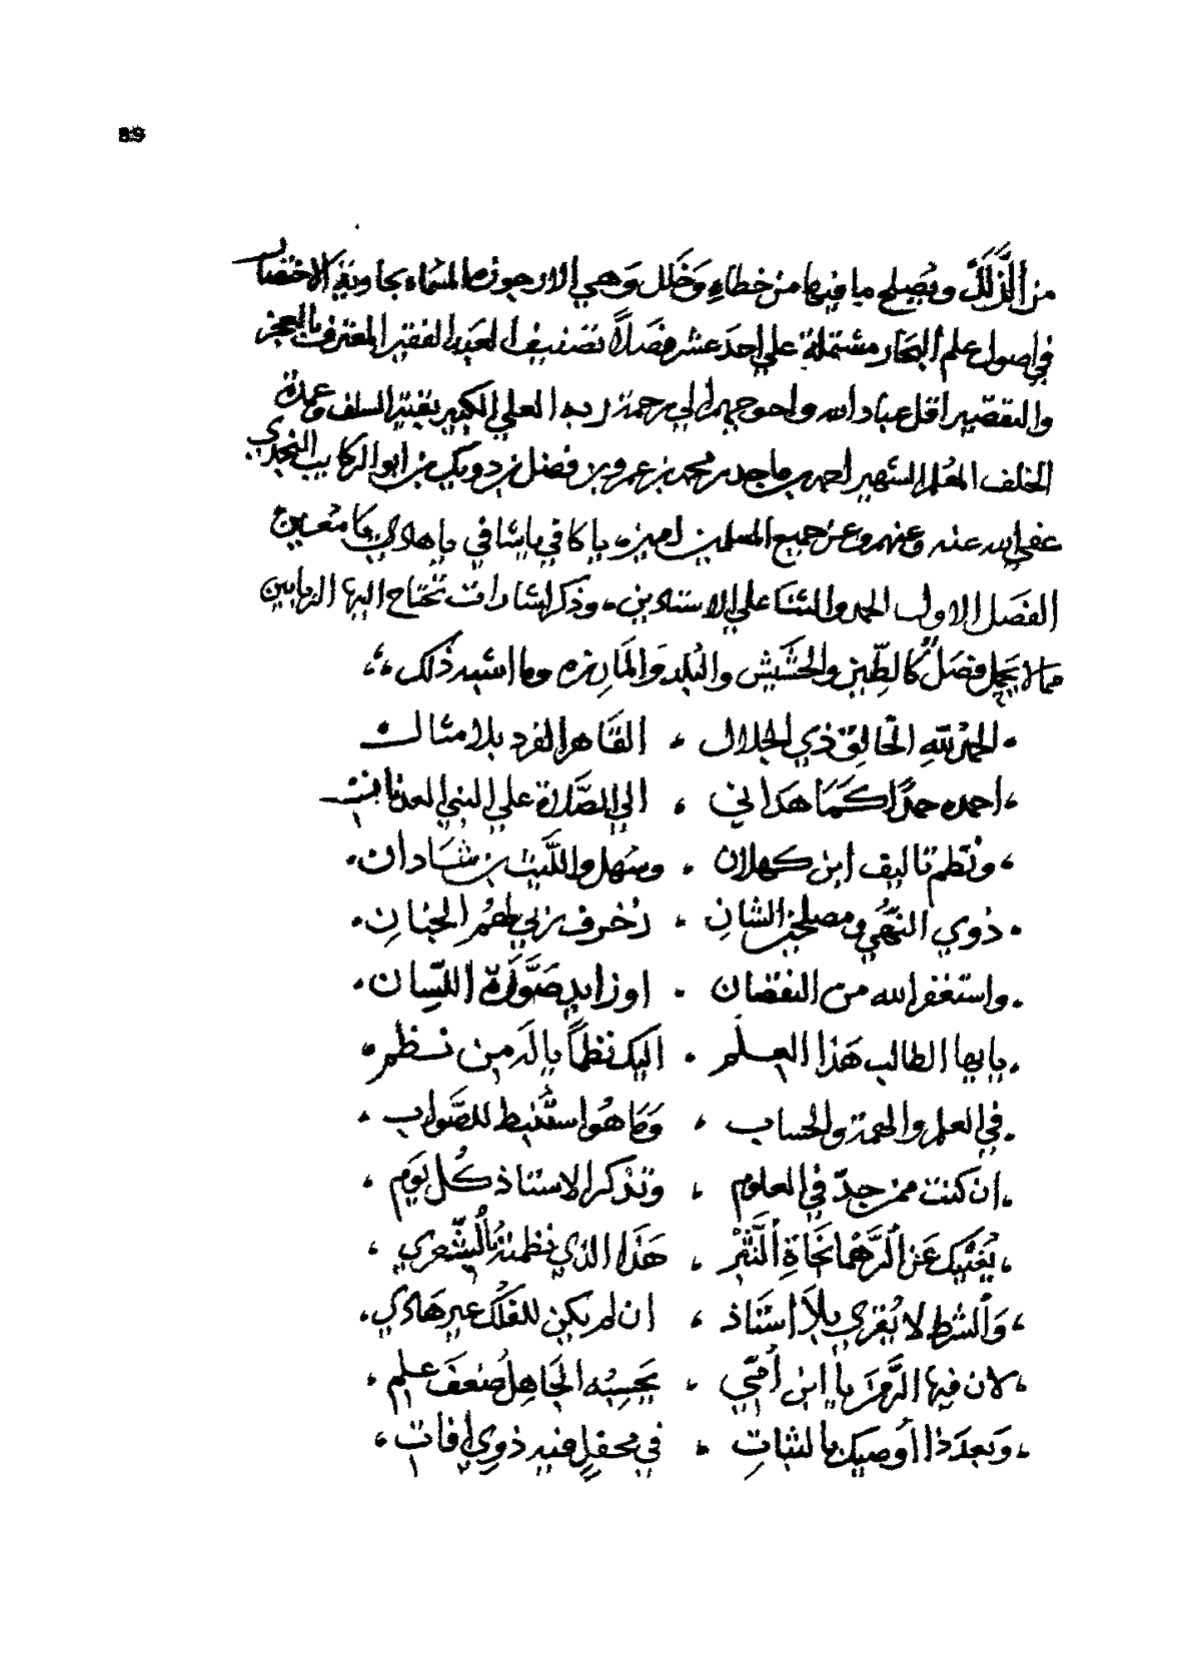 89
من الزَّلَل ويُصلح ما فيها من خطاءٍ وَخَلل وَهي الارجوزة المسماه بحاوية الاختصار
في اصول علم البحار مشتملة علي احدَ عشر فصَلاً تصنيف العبد الفقير المعترف بالعجز
والتقصير اقل عباد الله واحوجهم الي رحمة ربه العلي الكبير بقية السلف وعمدة
الخلف المعلم الشهير احمد بن ماجد بن محمد بن عمرو بن فضل بن دويك بن ابو الركايب النجدي
عفي الله عنه وعنهم وعن جميع المسلمين امين يا كافي يا شافي يا هادي يا مُعين
الفصَل الاول الحمد والثنا علي الاستادين، وذكر اشارات تحتاج اليها الربابين
مما لا يحمِل فصَلٌ كالطِّين والحشيش والبُلد وَالمَارِزه وما اشبه ذلك
الحمد للهِ الخالِق ذي الجلال ، القاهر الفرد بلا مثال
احمده حمدًا كَمَا هَداني ، الي الصَّلاة علي النبي العدناني
ونظم تاليف ابن كهلان ، وسَهل والليث بن شَادان
ذوي النُّهَي مصلحين الشانِ ، زخرف ربي لهُم الجنانِ
واستغفر الله من النقصان ، او زايدٍ صَوَّرَهُ اللسان
يايها الطالب هَذا العلم ، اليك نظماً يا لَه من نظم
في العلم والهمة والحساب ، وَمَا هُو استُنبط للصَّواب
ان كنت ممن جدّ في العلوم ، وتذكر الاستاذ كُل يَوم
يُغنيك عَن الرَّهمانجَاةِ النَّثر ، هَذا الذي نظمته بالشِّعري
وَالشرط لا يُقري بلا استَاذ ، ان لم يكن للفَلك غير هَادي
لان فيها الرَّمز يا ابن أمّي ، يحسِبُه الجَاهِل ضُعفَ علم
وَبعدَ ذا أوصيك بالثباتِ ، في محفلٍ فيه ذوي افات